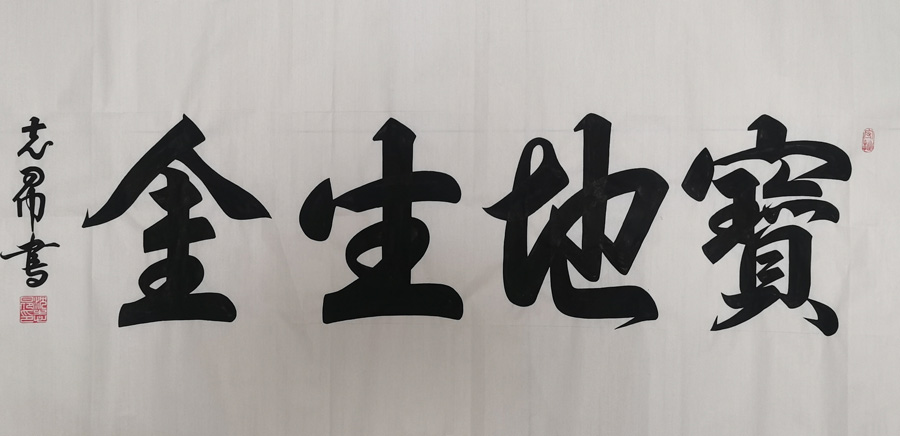 寶地生金
志昂書